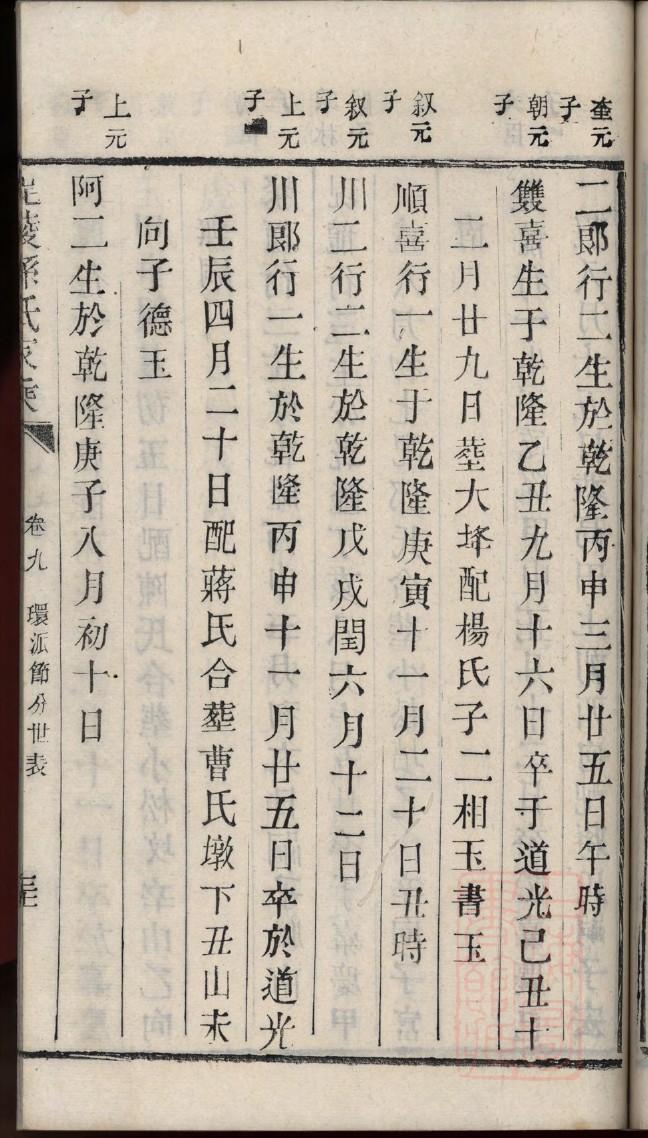 奎元子
二郎行二生於乾隆丙申三月廿五日午時
朝元子
雙喜生于乾隆乙丑九月十六日卒于道光己丑十
二月廿九日塟大垰配楊氏子二相玉書玉
叙元子
順喜行一生于乾隆庚寅十一月二十日丑時
叙元子
川二行二生於乾隆戊戌閏六月十二日
上元子
川郎行一生於乾隆丙申十一月廿五日卒於道光
壬辰四月二十日配蔣氏合塟曹氏墩下丑山未
向子德玉
上元子
阿二生於乾隆庚子八月初十日
毘陵孫氏家乘
卷九 環派節分世表